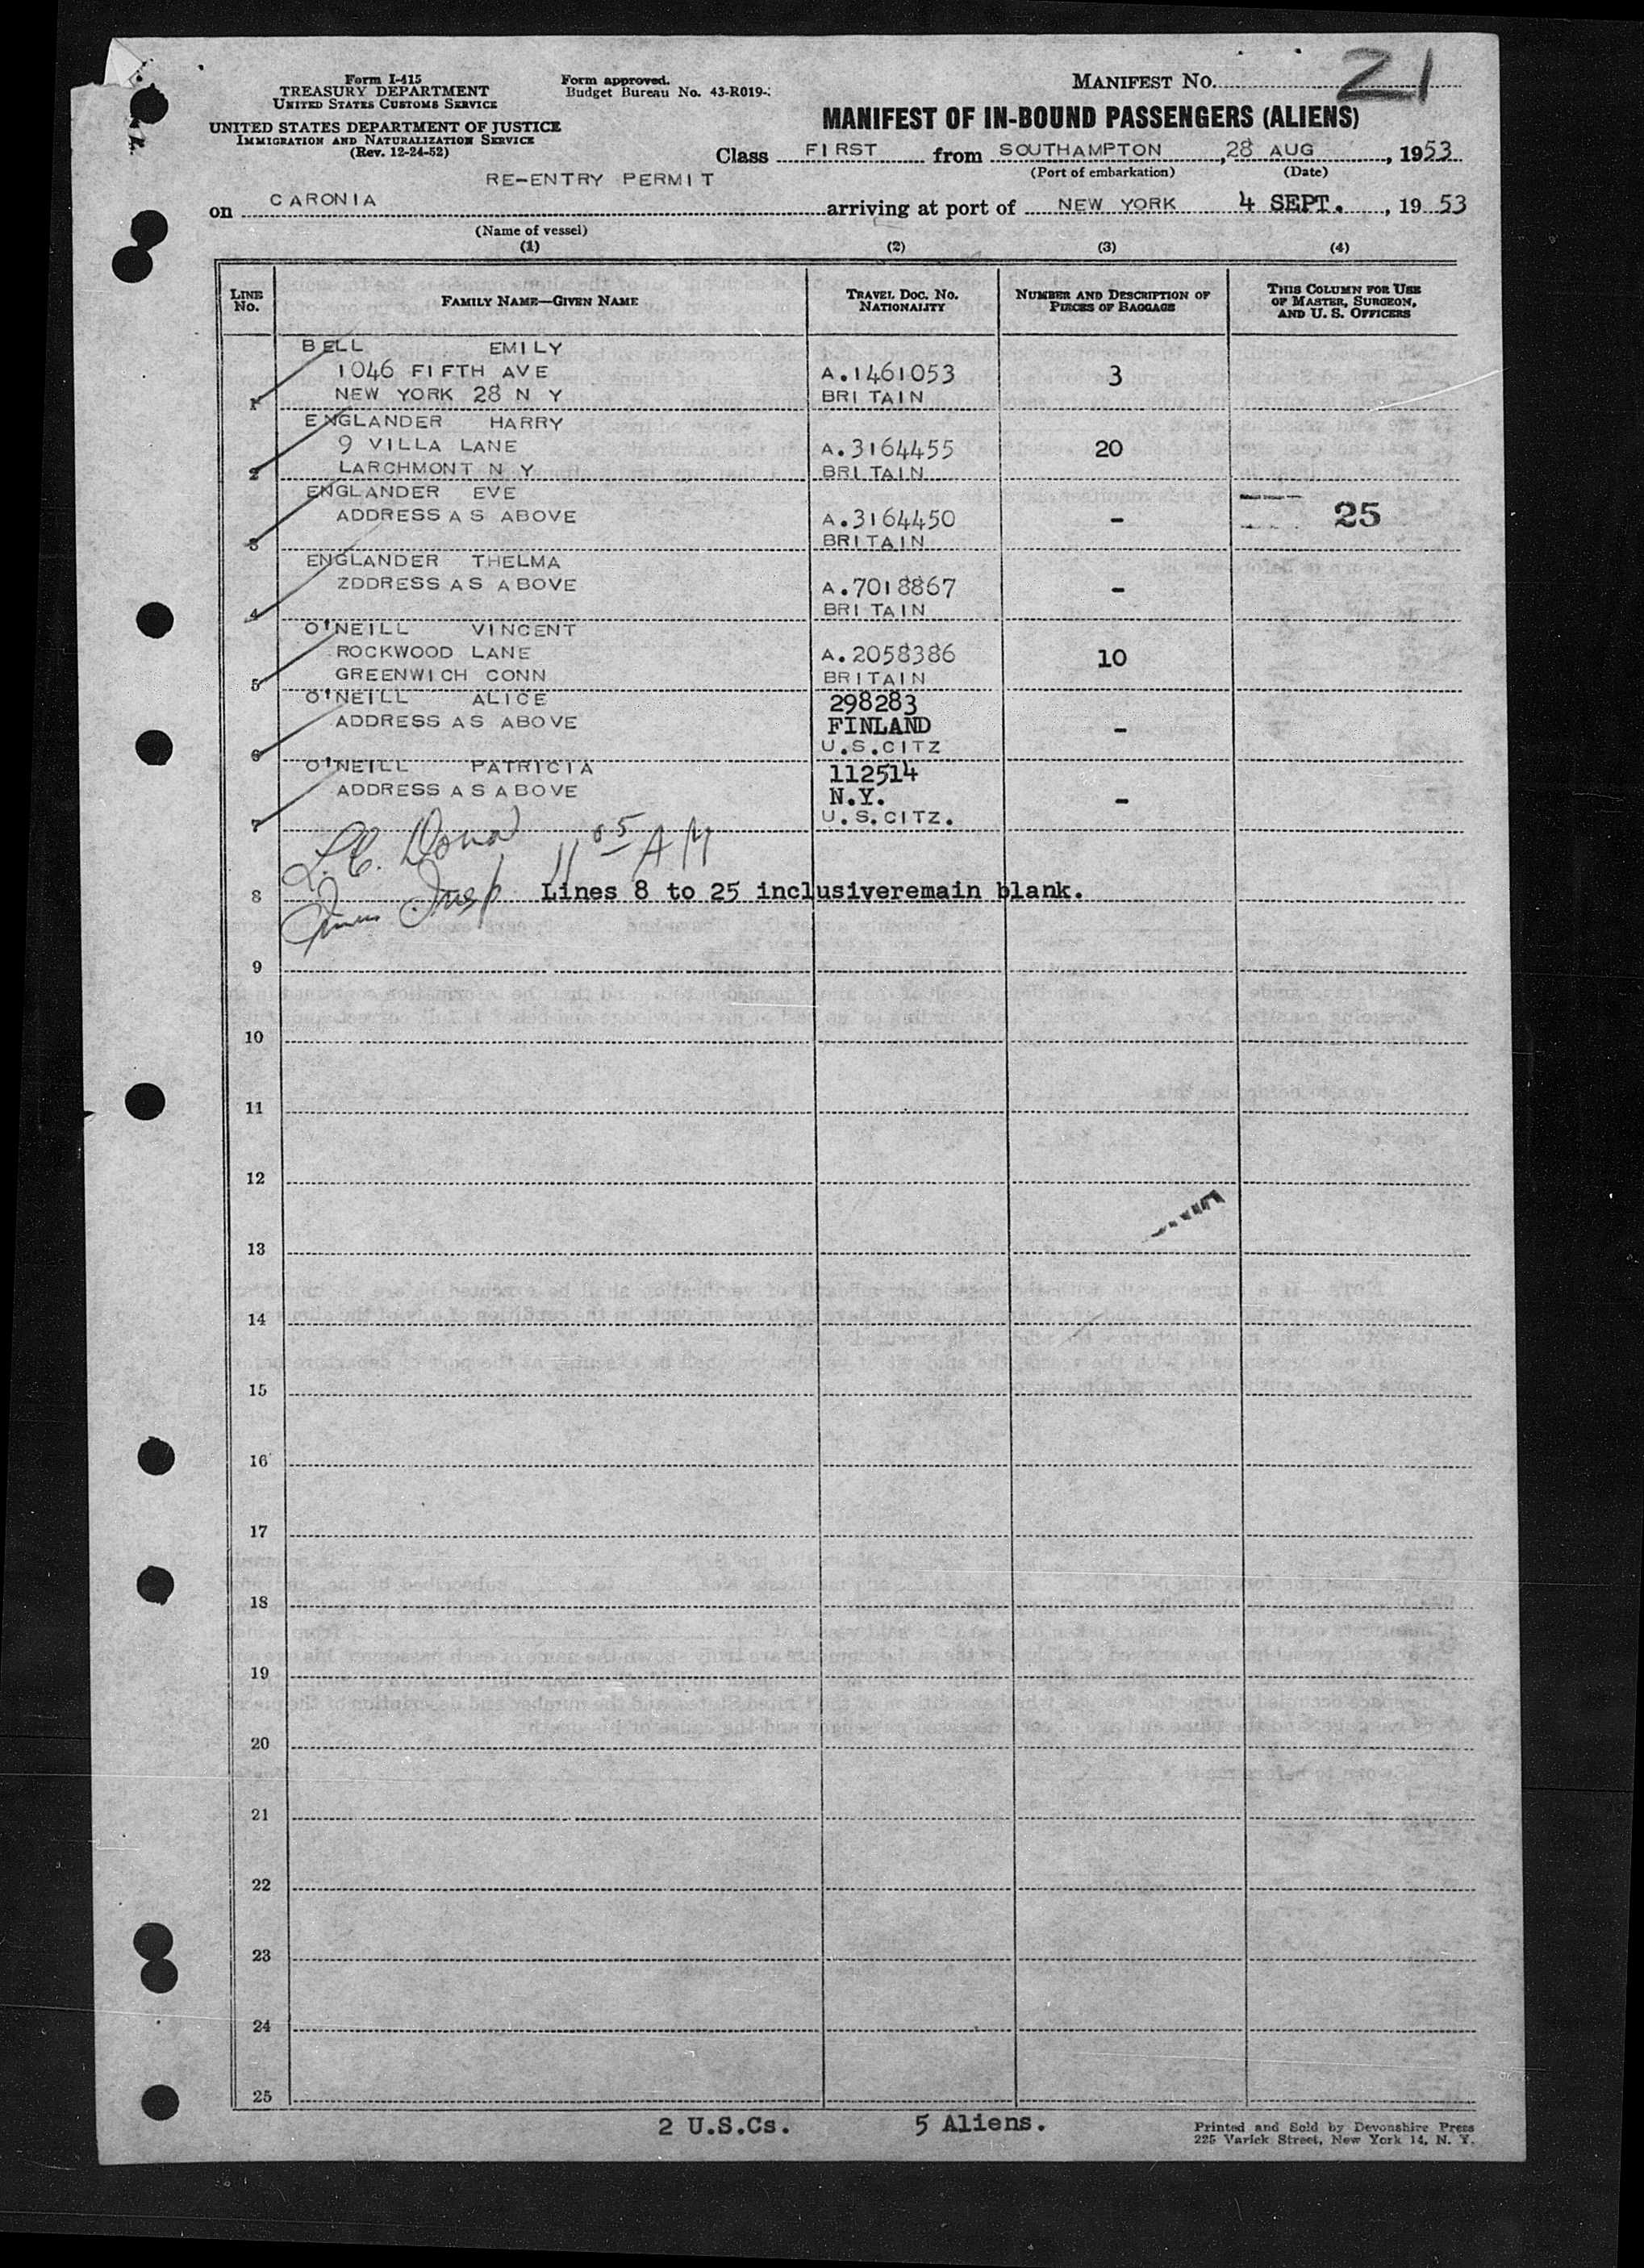 21
Form I-415
TREASURY DEPARTMENT
UNITED STATES CUSTOMS SERVICE
UNITED STATES DEPARTMENT OF JUSTICE
IMMIGRATION AND NATURALIZATION SERVICE
(Rev. 12-24-52)
Form approved.
Budget Bureau No. 43-R019-
MANIFEST NO.
MANIFEST OF IN-BOUND PASSENGERS (ALIENS)
Class FIRST from SOUTHAMPTON, 28 AUG, 1953
(Port of embarkation) (Date)
RE-ENTRY PERMIT
on CARONIA arriving at port of NEW YORK 4 SEPT., 1953
(Name of vessel)
(1) (2) (3) (4)
LINE NO. FAMILY NAME—GIVEN NAME TRAVEL DOC. NO. NATIONALITY NUMBER AND DESCRIPTION OF PIECES OF BAGGAGE THIS COLUMN FOR USE OF MASTER, SURGEON, AND U. S. OFFICERS
BELL EMILY
1046 FIFTH AVE A.1461053 3
1 NEW YORK 28 N Y BRITAIN
ENGLANDER HARRY
9 VILLA LANE A.3164455 20
2 LARCHMONT N Y BRITAIN
ENGLANDER EVE
ADDRESS AS ABOVE A.3164450 - 25
3 BRITAIN
ENGLANDER THELMA
ZDDRESS AS ABOVE A.7018867 -
4 BRITAIN
O'NEILL VINCENT
ROCKWOOD LANE A.2058386 10
5 GREENWICH CONN BRITAIN
O'NEILL ALICE 298283
ADDRESS AS ABOVE FINLAND -
6 U.S.CITZ
O'NEILL PATRICIA 112514
ADDRESS AS ABOVE N.Y. -
7 U.S.CITZ.
L.C. 11 05 AM
8 Insp Lines 8 to 25 inclusiveremain blank.
9
10
11
12
13
14
15
16
17
18
19
20
21
22
23
24
25
2 U.S.Cs. 5 Aliens.
Printed and Sold by Devonshire Press
225 Varick Street, New York 14, N. Y.